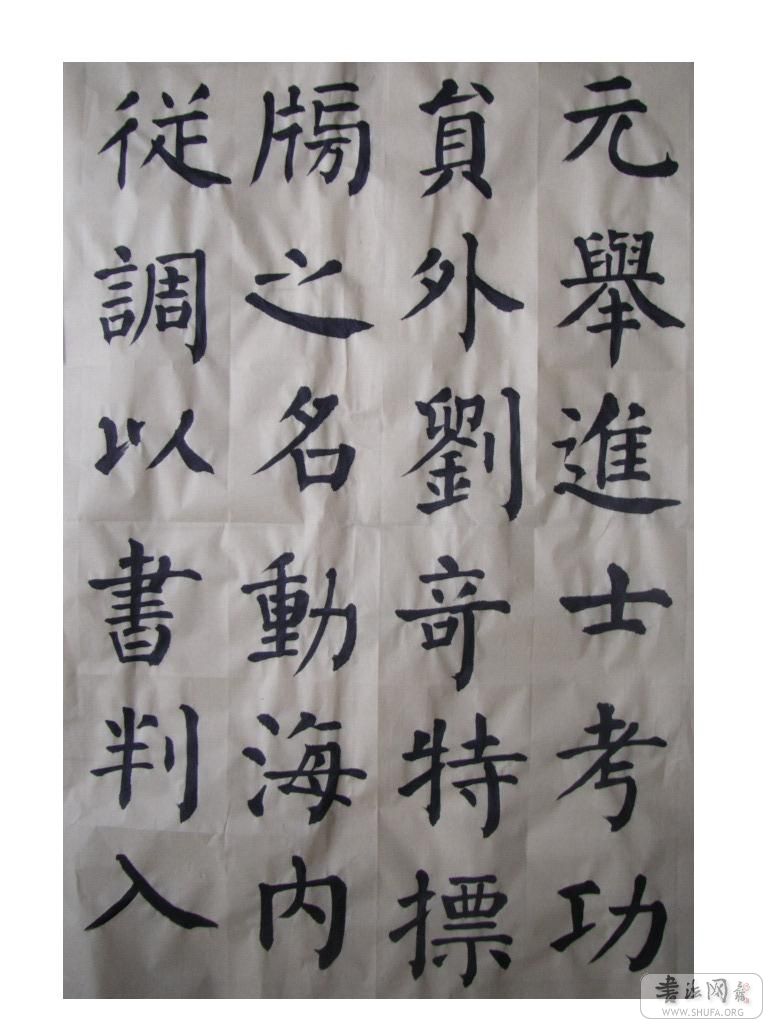 元舉進士考功
貟外劉竒特摽
牓之名動海内
從調以書判入
書法网
WWW.SHUFA.ORG